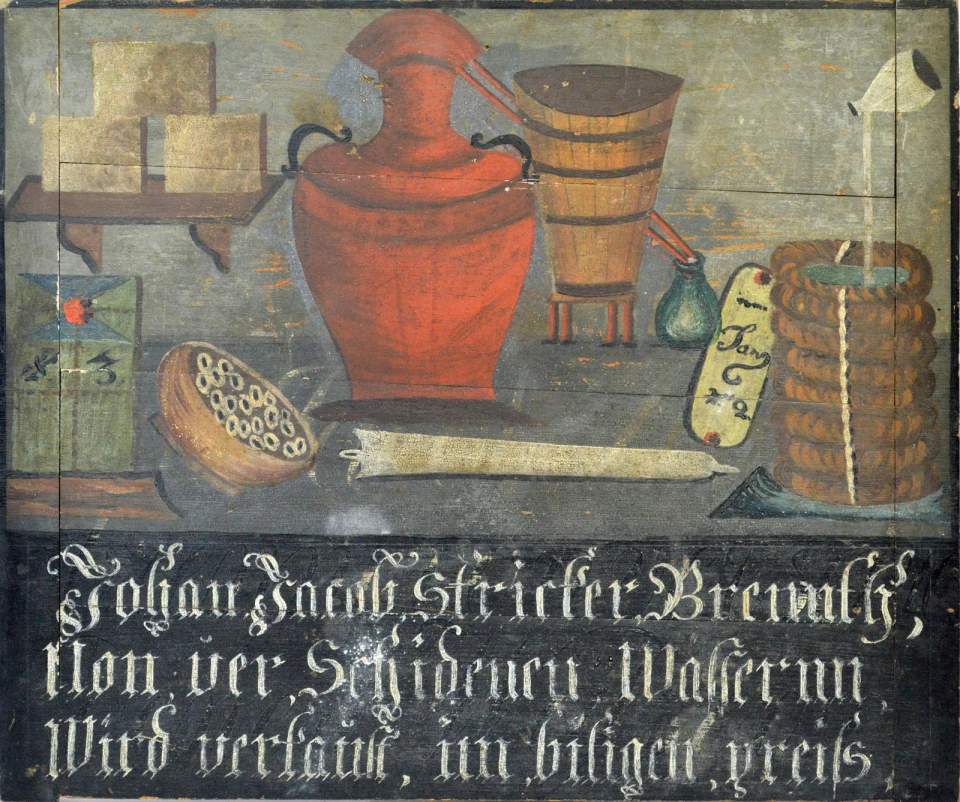 No 3
vom
Tang
No 2
Johan Jacob, Stricker, Brenntß,
Von, ver, Schidenen, Wassernn,
Wird verkauft, im, biligen, preiss,